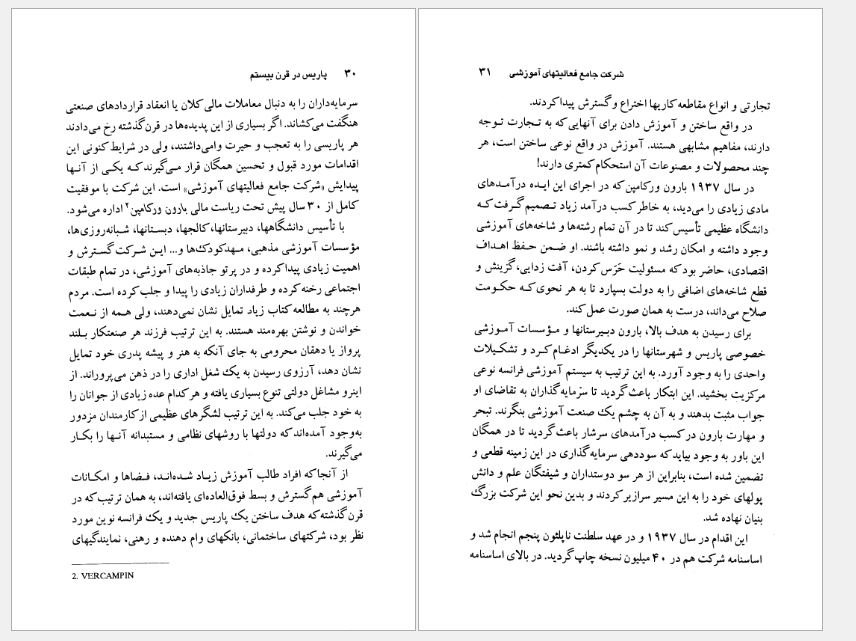 ۳۰ پاریس در قرن بیستم
سرمایه‌داران را به دنبال معاملات مالی کلان یا انعقاد قراردادهای صنعتی
هنگفت می‌کشاند. اگر بسیاری از این پدیده‌ها در قرن گذشته رخ می‌دادند
هر پاریسی را به تعجب و حیرت وامی‌داشتند، ولی در شرایط کنونی این
اقدامات مورد قبول و تحسین همگان قرار می‌گیرند که یکی از آنها
پیدایش «شرکت جامع فعالیتهای آموزشی» است. این شرکت با موفقیت
کامل از ۳۰ سال پیش تحت ریاست مالی بارون ورکامپن۲ اداره می‌شود.
با تأسیس دانشگاهها، دبیرستانها، کالجها، دبستانها، شبانه‌روزی‌ها،
مؤسسات آموزشی مذهبی، مهدکودک‌ها و... این شرکت گسترش و
اهمیت زیادی پیدا کرده و در پرتو جاذبه‌های آموزشی، در تمام طبقات
اجتماعی رخنه کرده و طرفداران زیادی را پیدا و جلب کرده است. مردم
هرچند به مطالعه کتاب زیاد تمایل نشان نمی‌دهند، ولی همه از نعمت
خواندن و نوشتن بهره‌مند هستند. به این ترتیب فرزند هر صنعتکار بلند
پرواز یا دهقان محرومی به جای آنکه به هنر و پیشه پدری خود تمایل
نشان دهد، آرزوی رسیدن به یک شغل اداری را در ذهن می‌پروراند. از
اینرو مشاغل دولتی تنوع بسیاری یافته و هر کدام عده زیادی از جوانان را
به خود جلب می‌کند. به این ترتیب لشگرهای عظیمی از کارمندان مزدور
به‌وجود آمده‌اند که دولتها با روشهای نظامی و مستبدانه آنها را بکار
می‌گیرند.
از آنجا که افراد طالب آموزش زیاد شده‌اند، فضاها و امکانات
آموزشی هم گسترش و بسط فوق‌العاده‌ای یافته‌اند، به همان ترتیب که در
قرن گذشته که هدف ساختن یک پاریس جدید و یک فرانسه نوین مورد
نظر بود، شرکتهای ساختمانی، بانکهای وام دهنده و رهنی، نمایندگیهای
2. VERCAMPIN
شرکت جامع فعالیتهای آموزشی ۳۱
تجارتی و انواع مقاطعه‌کاریها اختراع و گسترش پیدا کردند.
در واقع ساختن و آموزش دادن برای آنهایی که به تجارت توجه
دارند، مفاهیم مشابهی هستند. آموزش در واقع نوعی ساختن است، هر
چند محصولات و مصنوعات آن استحکام کمتری دارند!
در سال ۱۹۳۷ بارون ورکامپن که در اجرای این ایده درآمدهای
مادی زیادی را می‌دید، به خاطر کسب درآمد زیاد تصمیم گرفت که
دانشگاه عظیمی تأسیس کند تا در آن تمام رشته‌ها و شاخه‌های آموزشی
وجود داشته و امکان رشد و نمو داشته باشند. او ضمن حفظ اهداف
اقتصادی، حاضر بود که مسئولیت حَرَس کردن، آفت زدایی، گزینش و
قطع شاخه‌های اضافی را به دولت بسپارد تا به هر نحوی که حکومت
صلاح می‌داند، درست به همان صورت عمل کند.
برای رسیدن به هدف بالا، بارون دبیرستانها و مؤسسات آموزشی
خصوصی پاریس و شهرستانها را در یکدیگر ادغام کرد و تشکیلات
واحدی را به وجود آورد. به این ترتیب به سیستم آموزشی فرانسه نوعی
مرکزیت بخشید. این ابتکار باعث گردید تا سرمایه‌گذاران به تقاضای او
جواب مثبت بدهند و به آن به چشم یک صنعت آموزشی بنگرند. تبحر
و مهارت بارون در کسب درآمدهای سرشار باعث گردید تا در همگان
این باور به وجود بیاید که سوددهی سرمایه‌گذاری در این زمینه قطعی و
تضمین شده است، بنابراین از هر سو دوستداران و شیفتگان علم و دانش
پولهای خود را به این مسیر سرازیر کردند و بدین نحو این شرکت بزرگ
بنیان نهاده شد.
این اقدام در سال ۱۹۳۷ و در عهد سلطنت ناپلئون پنجم انجام شد و
اساسنامه شرکت هم در ۴۰ میلیون نسخه چاپ گردید. در بالای اساسنامه